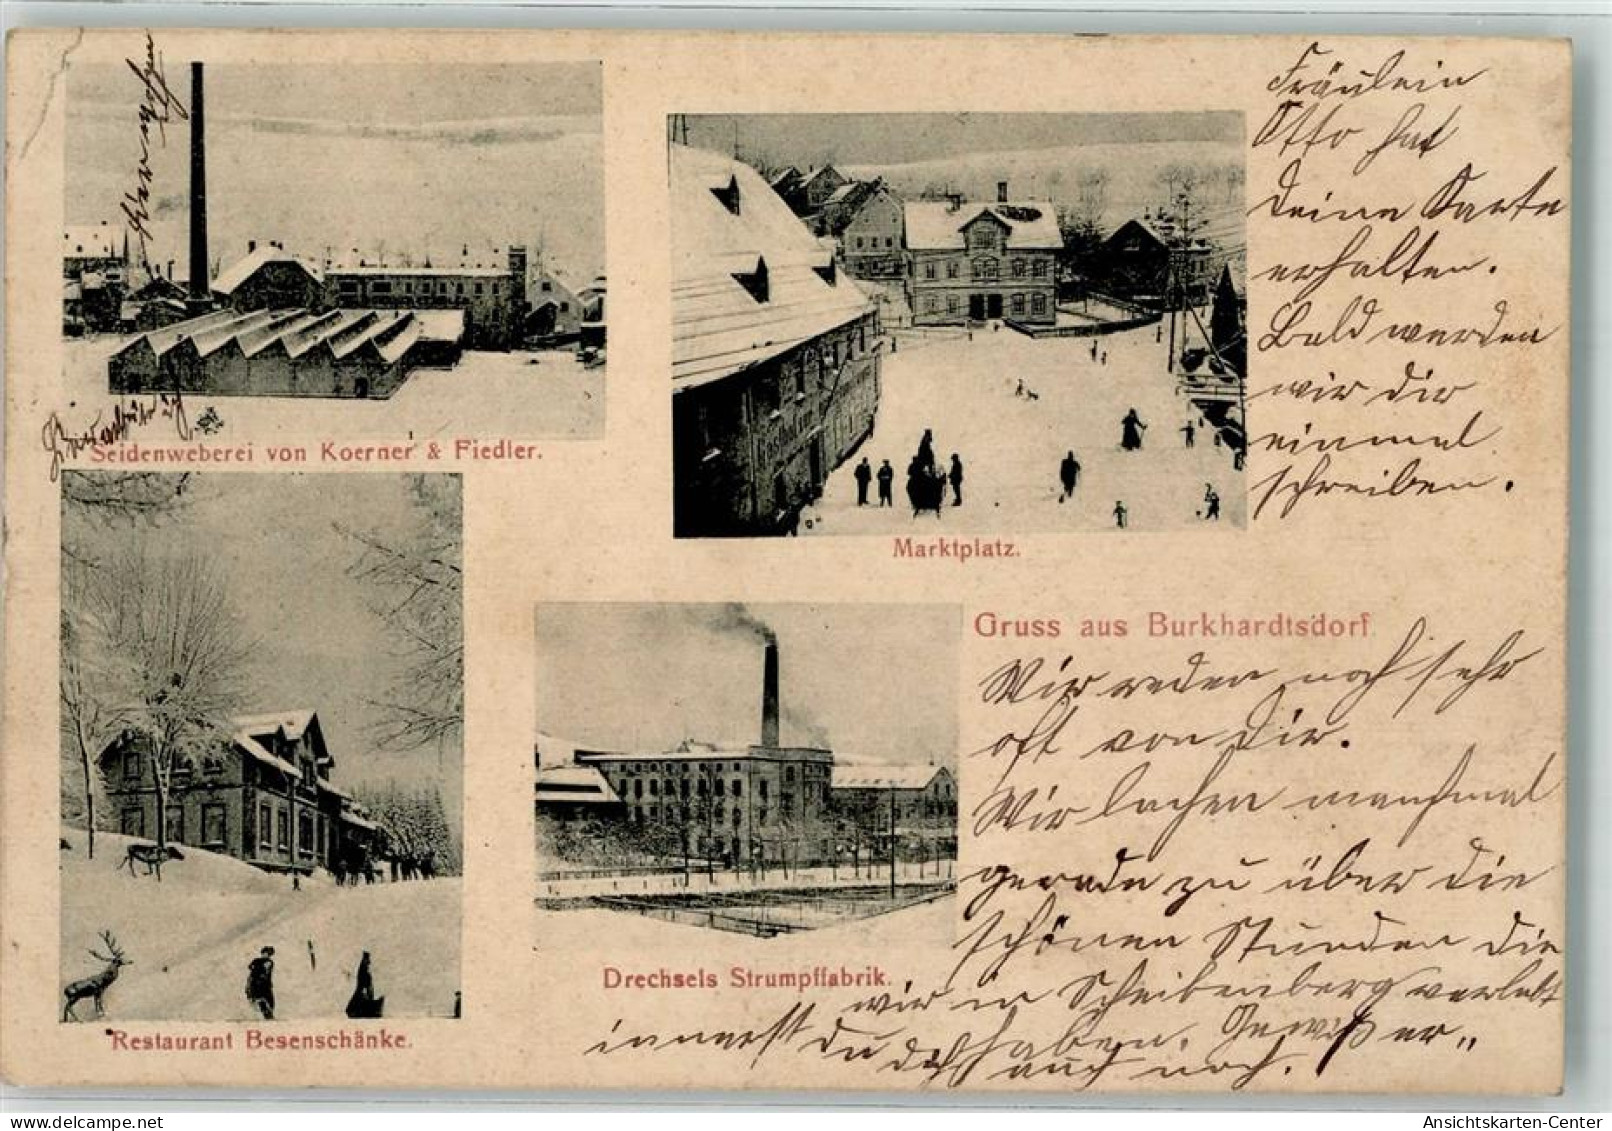 Fräulein
Otto hat
deine Karte
erhalten.
Bald werden
wir dir
einmal
schreiben.
hier wohnen
Seidenweberei von Koerner & Fiedler.
Marktplatz.
Gasthof
Gruss aus Burkhardtsdorf
Wir reden noch sehr
oft von Dir.
Wir lachen manchmal
gerade zu über die
schönen Stunden die
wir in Scheibenberg verlebt
haben. Gewiß er„
innerst du dich auch noch.
Drechsels Strumpffabrik.
Restaurant Besenschänke.
Ansichtskarten-Center